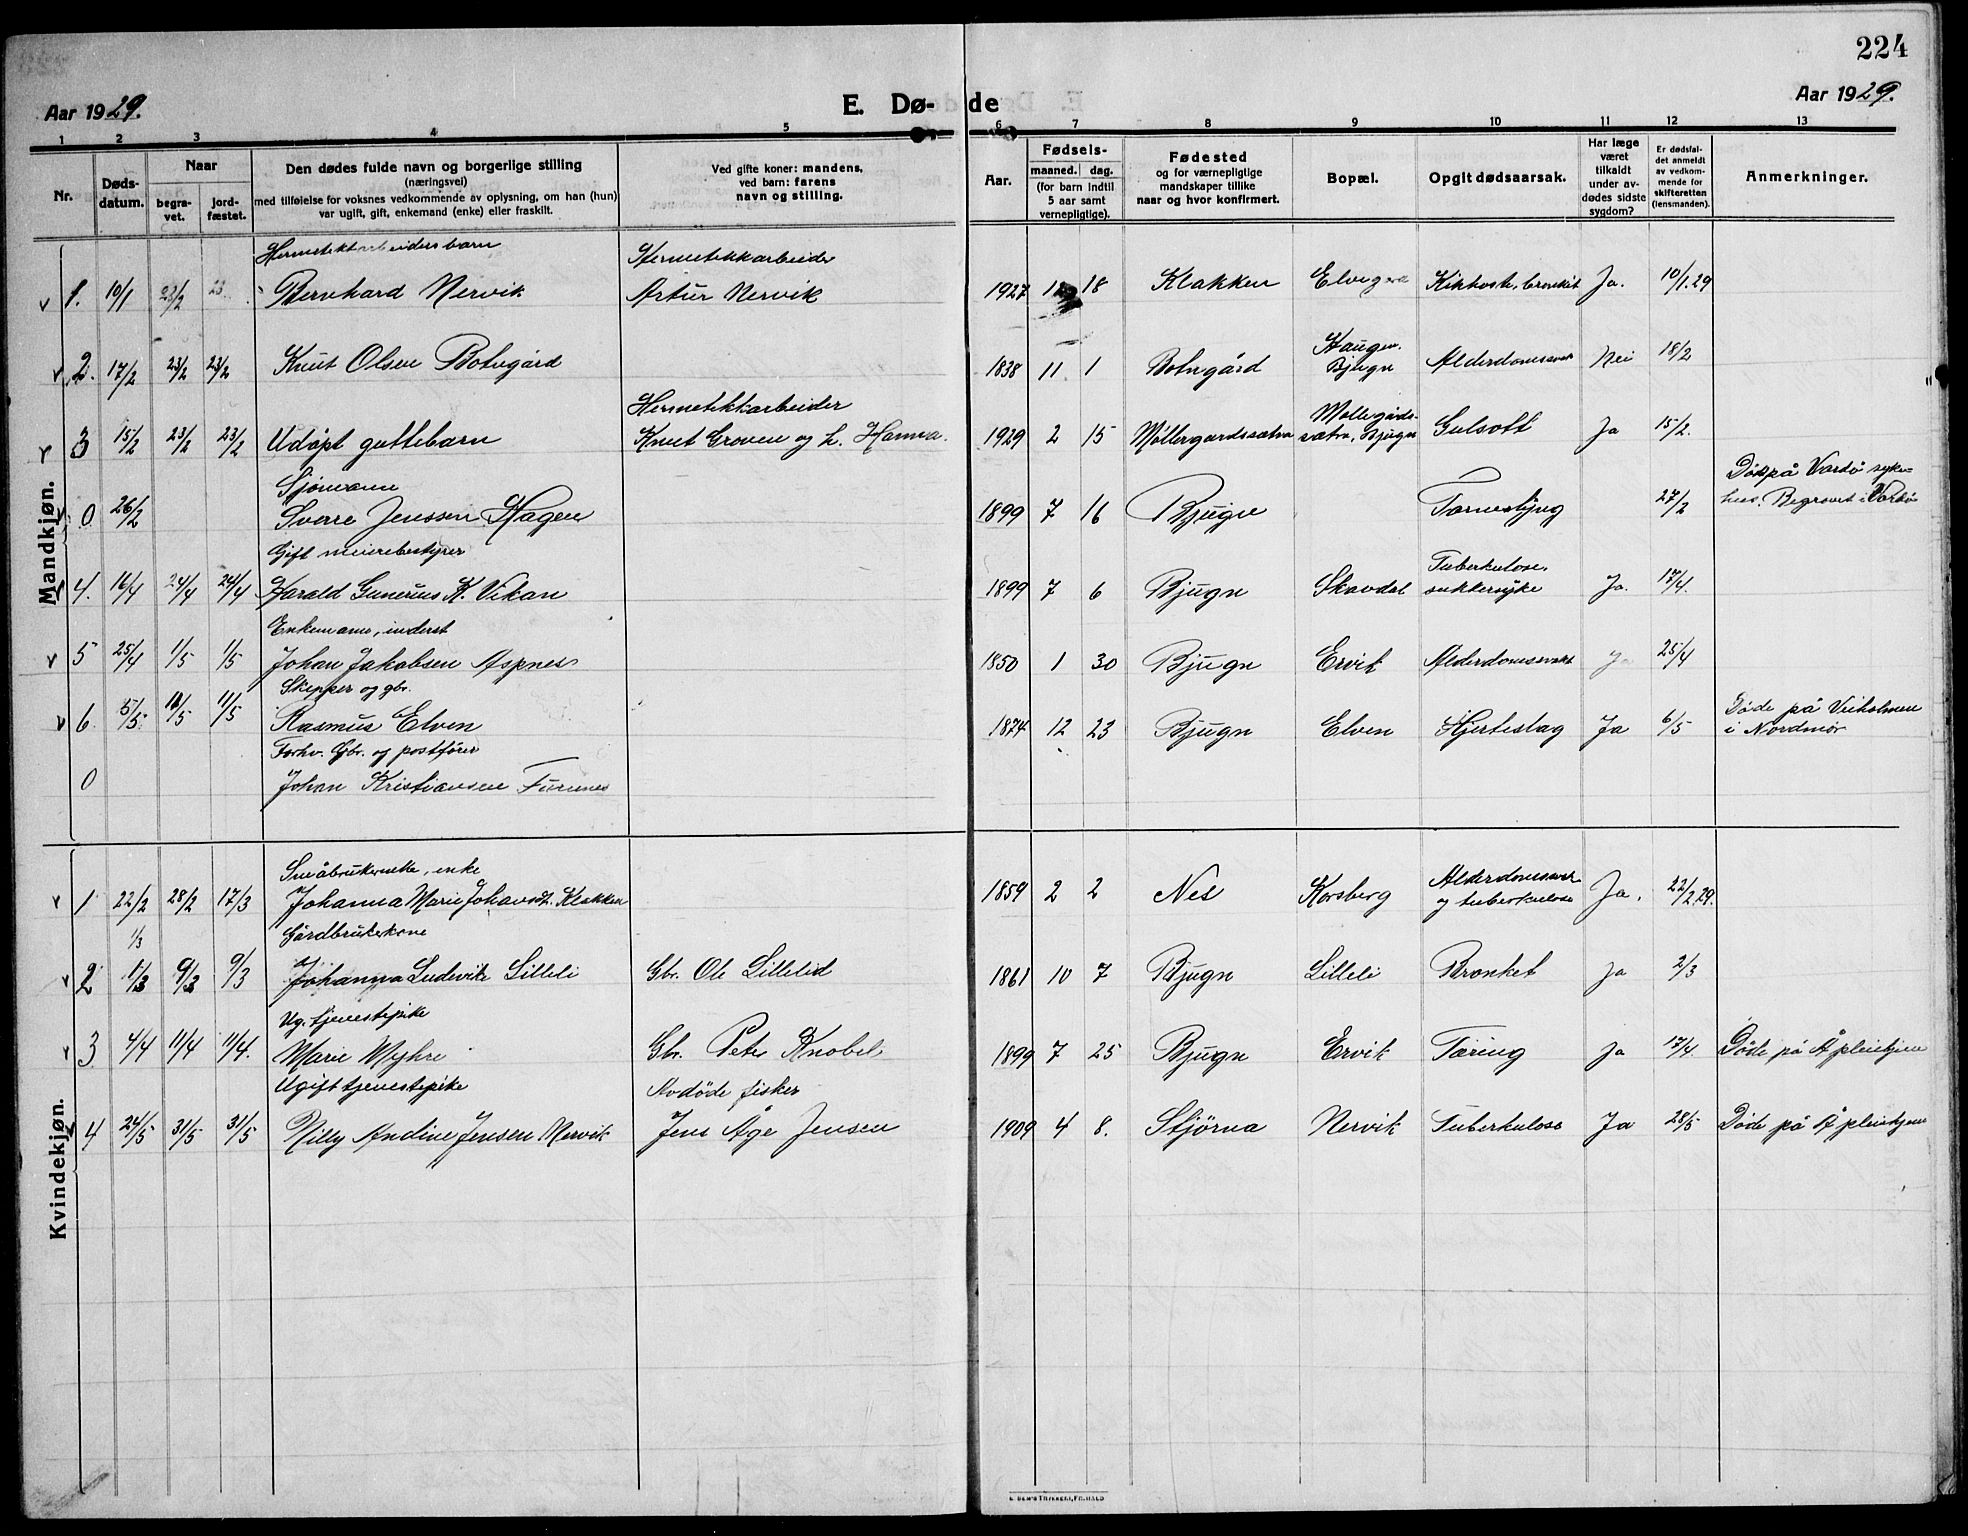 224
Aar 1929.
E. Dø-de
Aar 1929.
1 2 3 4 5 6 7 8 9 10 11 12 13
Nr.
Døds-
datum.
Naar
begra-
vet.
jord-
fæstet.
Den dødes fulde navn og borgerlige stilling
(næringsvei)
med tilføielse for voksnes vedkommende av oplysning, om han (hun)
var ugift, gift, enkemand (enke) eller fraskilt.
Ved gifte koner: mandens,
ved barn: farens
navn og stilling.
Aar.
Fødsels-
maaned. dag.
(for barn indtil
5 aar samt
vernepligtige).
Fødested
og for værnepligtige
mandskaper tillike
naar og hvor konfirmert.
Bopæl.
Opgit dødsaarsak.
Har læge
været
tilkaldt
under av-
dødes sidste
sygdom?
Er dødsfal-
det anmeldt
av vedkom-
mende for
skifteretten
(lensmanden).
Anmerkninger.
Mandkjøn.
Hermetikkarbeiders barn Hermetikkarbeider
1. 10/1 23/2 23 Bernhard Nervik Artur Nervik 1927 12 18 Klakken Kikhoste, bronkit Ja. 10/1.29
2. 17/2 23/2 23/2 Knut Olsen Botngård 1838 11 1 Botngård Haugen, Bjugn Alderdomssvak Nei 18/2
Hermetikkarbeider
3 15/2 23/2 23/2 Udøpt guttebarn Knut Groven og h. Hanna. 1929 2 15 Møllergardssætra Møllegårds-
sætra, Bjugn Gulsott Ja 15/2.
Sjømann
0 26/2 Sverre Jenssen Hagen 1899 7 16 Bjugn 27/2 Død på Vardö syke-
hus. Begravet i Vardø
Gift meieribestyrer
4. 16/4 24/4 24/4 Harald Gunerius K. Vikan 1899 7 6 Bjugn Skavdal Tuberkulose,
sukkersyke Ja. 17/4.
Enkemann, inderst
5 25/4 1/5 1/5 Johan Jakobsen Aspnes 1850 1 30 Bjugn Ervik Alderdomssvakt Ja 25/4
Skipper og gbr.
6. 5/5. 11/5 11/5 Rasmus Elven 1874 12 23 Bjugn Elven Hjerteslag Ja 6/5 Døde på Veiholmen
i Nordmør
Forhv. Gbr. og postfører
0 Johan Kristiansen Furunes
Kvindekjøn.
Småbrukerenke, enke
1 22/2 28/2 17/3 Johanna Marie Johansd. Klakken 1859 2 2 Nes Korsberg Alderdomssvak
og tuberkulose Ja. 22/2.29.
1/3 Gårdbrukerkone
2 1/3 9/3 9/3 Johanna Ludevike Lilleli Gbr. Ole Lillelid 1861 10 7 Bjugn Lilleli Bronket Ja 2/3
Ug. tjenestepike
3 4/4 11/4 11/4. Marie Myhre Gbr. Peter Knobel 1899 7 25 Bjugn Ervik Tæring Ja 17/4. Døde på Å pleiehjem
Ugift tjenestepike Avdöde fisker
4 24/5 31/5 31/5 Nilly Andine Jensen Nervik Jens Åge Jensen 1909 4 8. Stjørna Nervik Tuberkulose Ja 28/5 Döde på Å pleiehjem